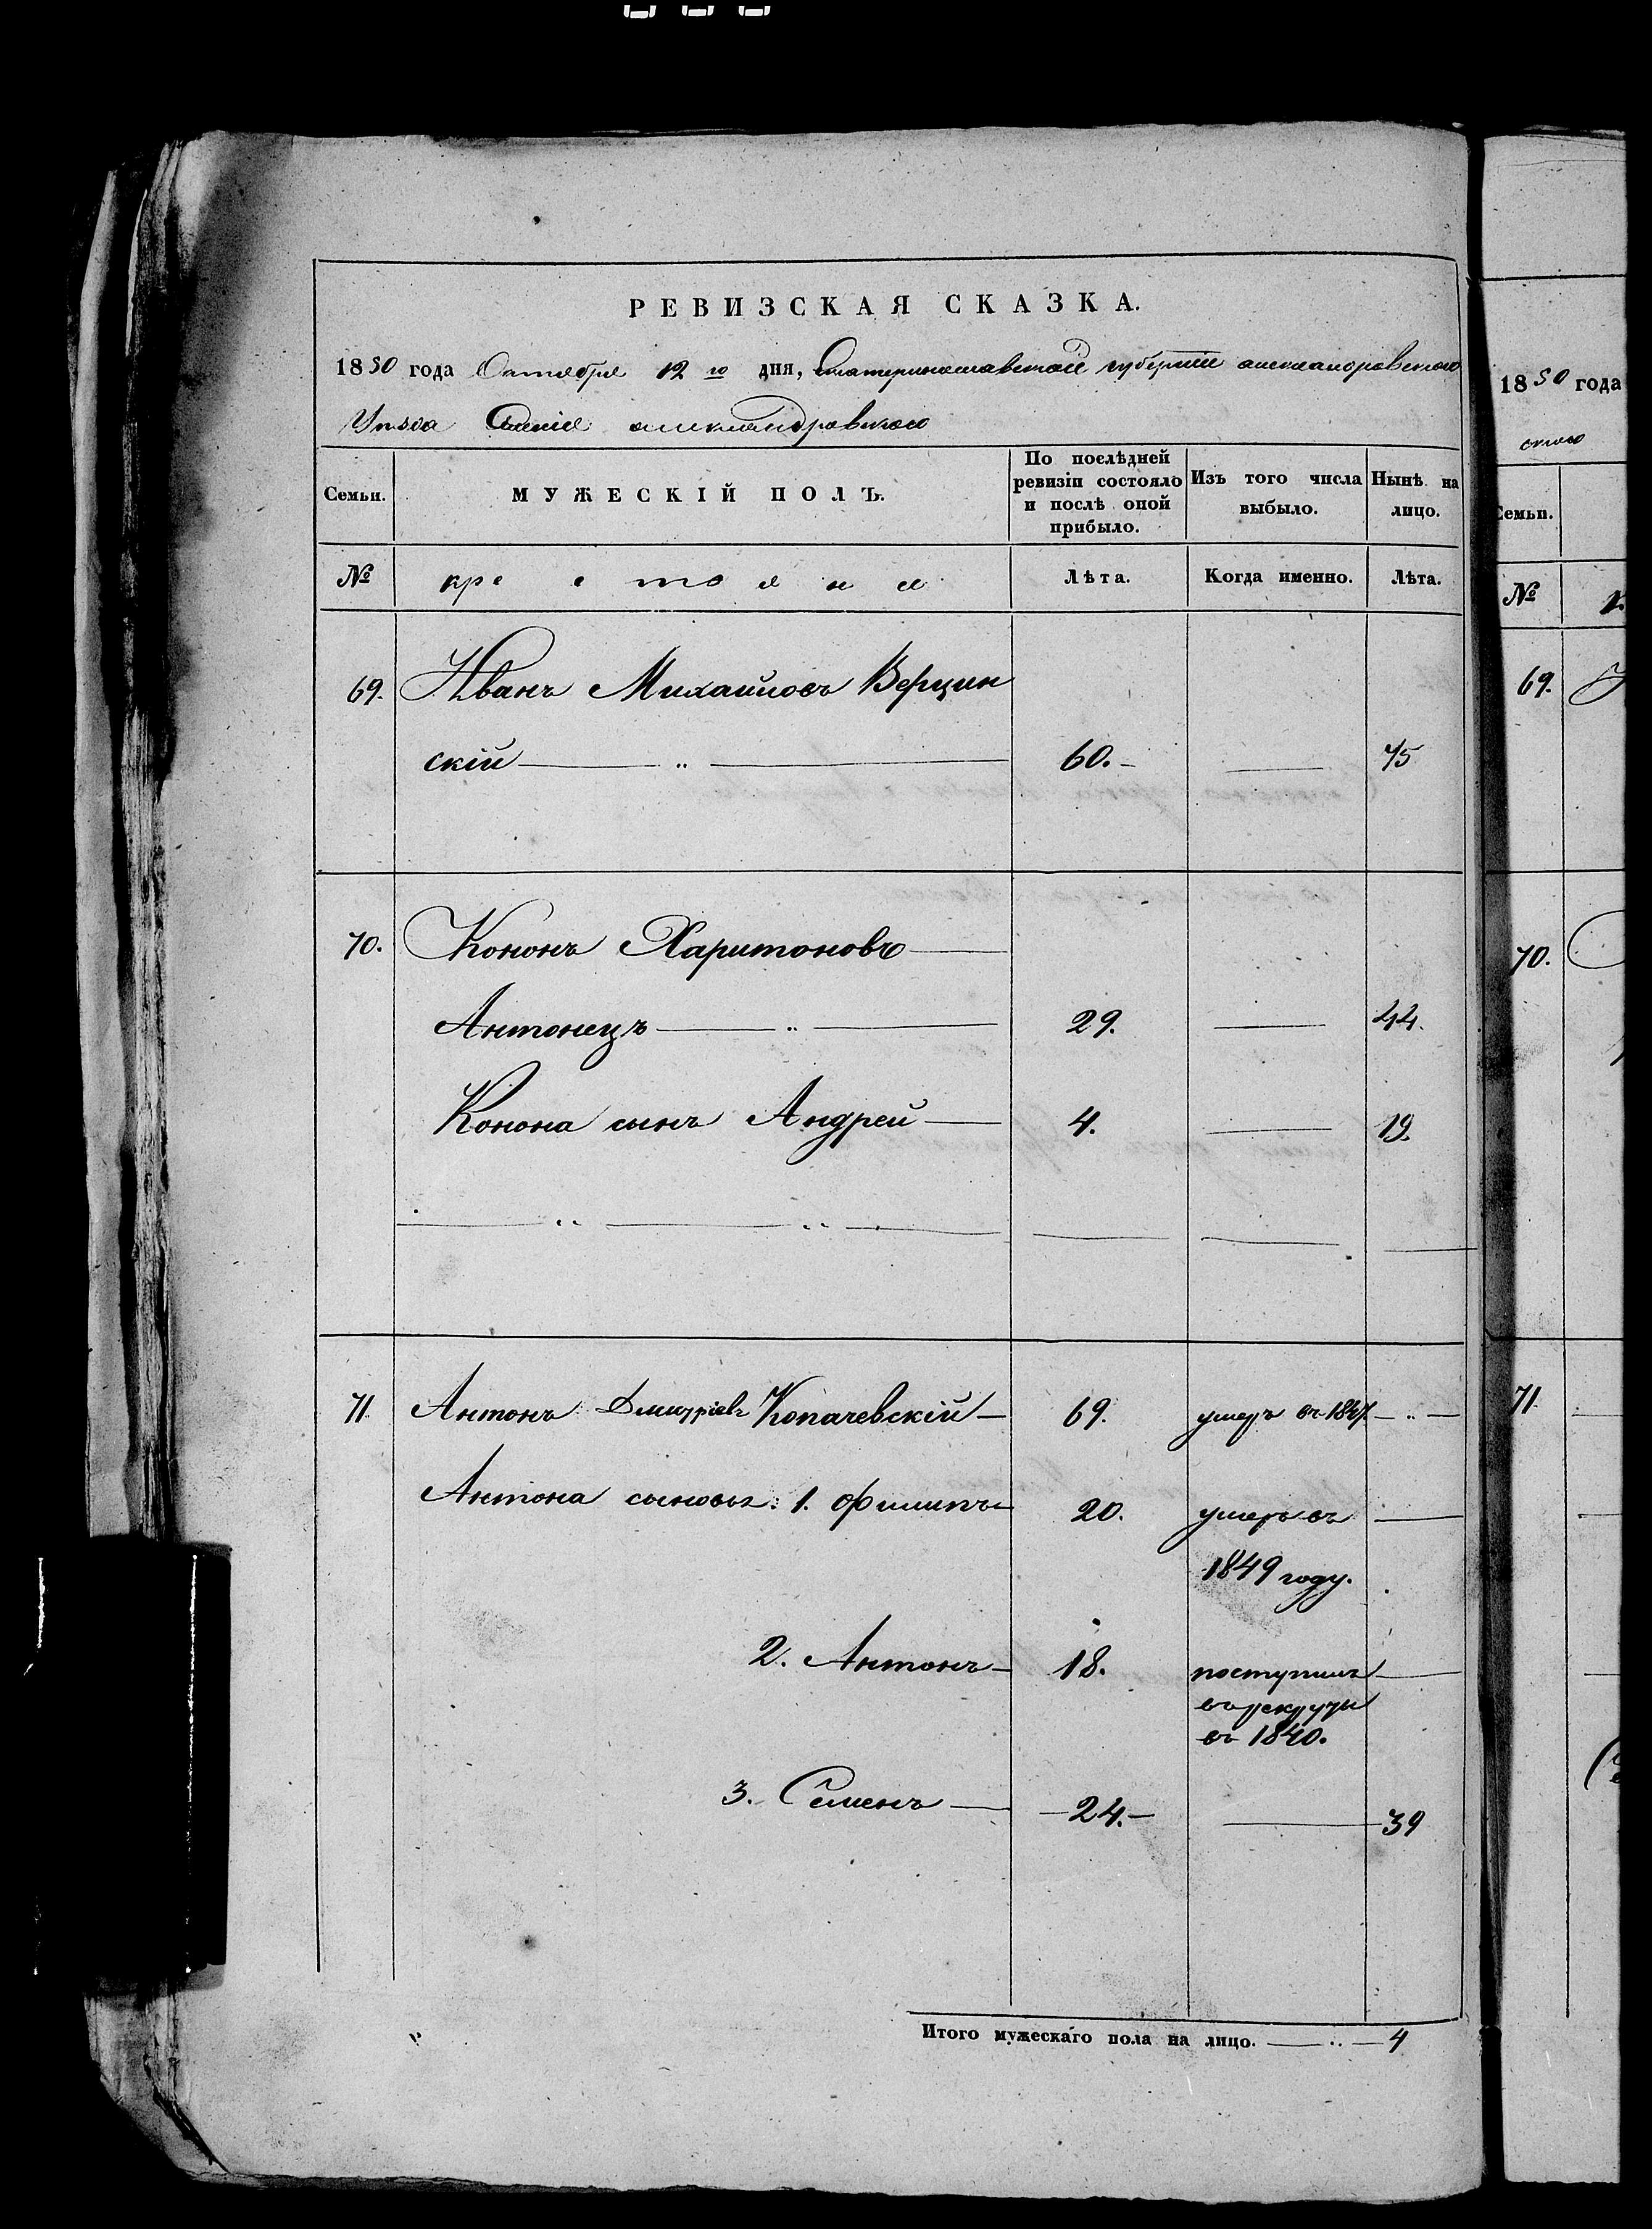 РЕВИЗСКАЯ СКАЗКА.
1850 года Октября 12го дня, Екатеринославской губернии александровского
Уезда Селенiя александровского
Семьи. МУЖЕСКIЙ ПОЛЪ. По послѣдней ревизiи состояло и послѣ оной прибыло. Изъ того числа выбыло. Нынѣ на лицо.
№ крестояня Лѣта. Когда именно. Лѣта.
69. Иванъ Михайловъ Верцин
скiй 60. 75
70. Кононъ Харитоновъ
Антонецъ 29. 44.
Конона сынъ Андрей 4. 19.
71. Антонъ Дмитрiевъ Копачевскiй 69. умеръ въ 1847.
Антона сыновья: 1. Филипъ 20. умеръ въ
1849 году.
2. Антонъ 18. поступилъ
въ рекруты
въ 1840.
3. Семенъ 24. 39
Итого мужескаго пола на лицо. 4
1850 года
ского
Семьи.
№
69.
70.
71.